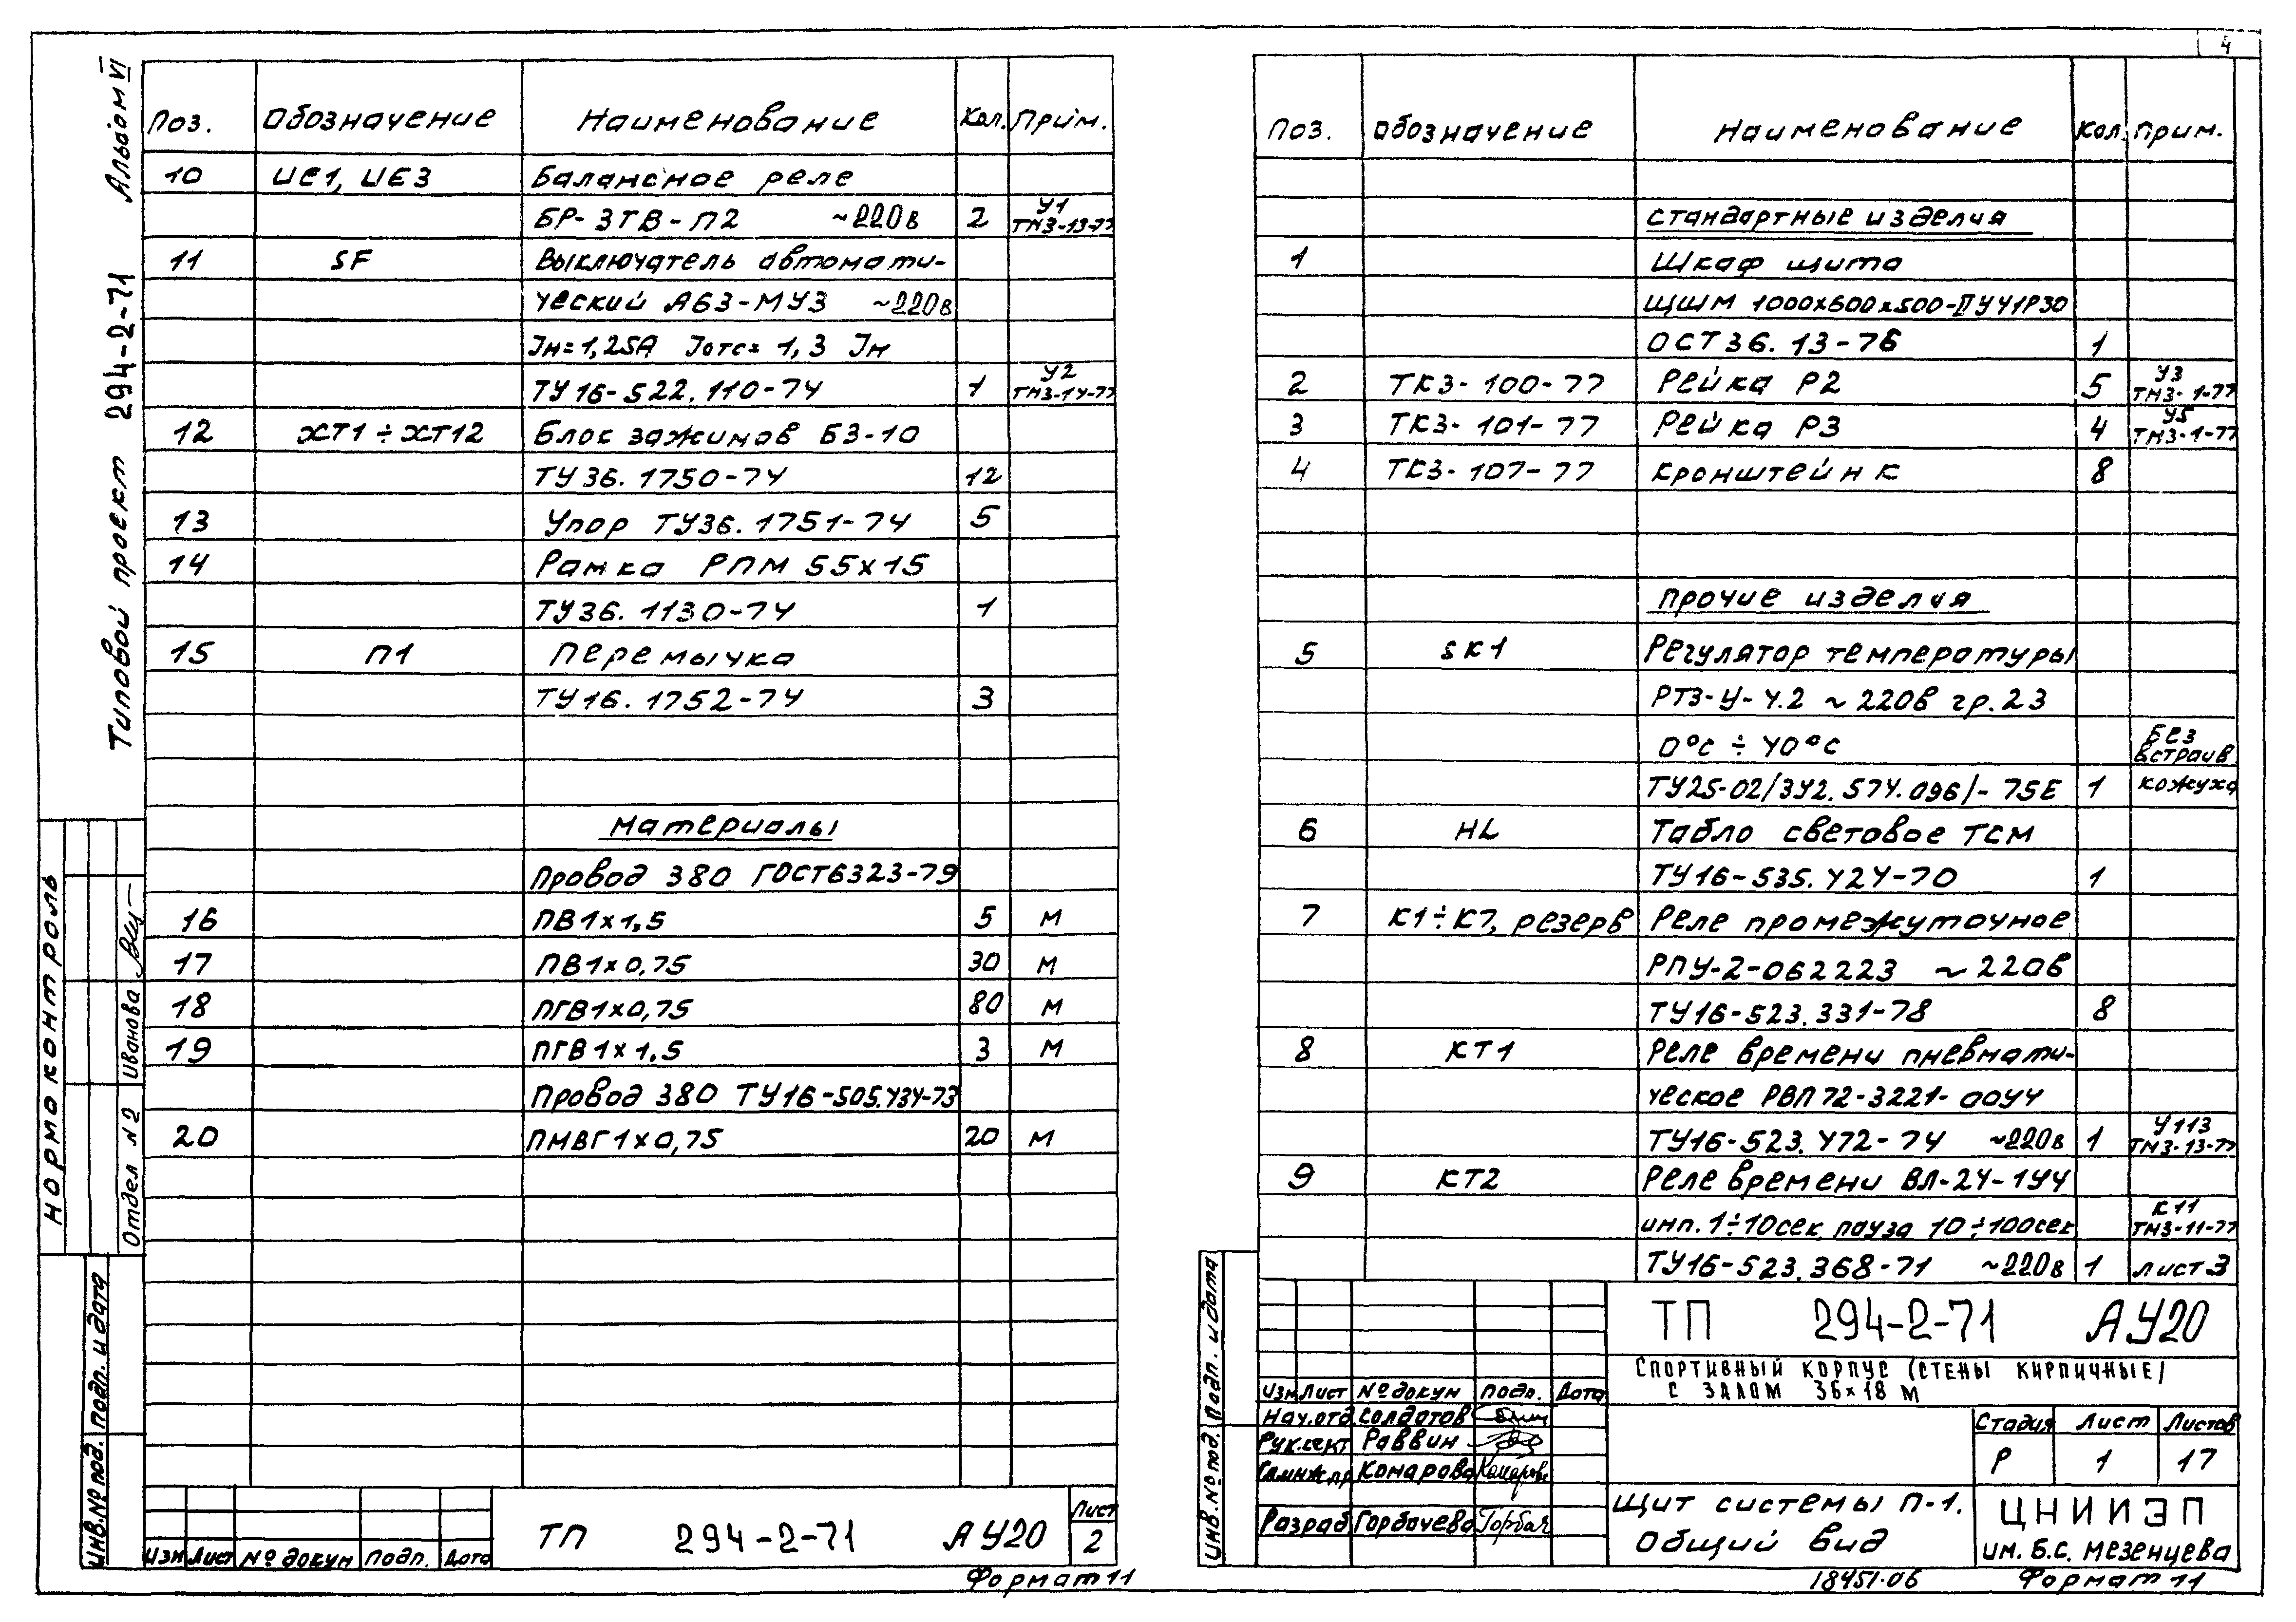 4
Альбом VI
Типовой проект 294-2-71
Поз. Обозначение Наименование Кол. Прим.
10 UE1, UE3 Балансное реле
БР-3ТВ-П2 ~220в 2 У1 ТМ3-13-77
11 SF Выключатель автомати-
ческий А63-МУ3 ~220в
Iн=1,25А Iотс= 1,3 Iн
ТУ16-522.110-74 1 У2 ТМ3-14-77
12 ХТ1÷ХТ12 Блок зажимов Б3-10
ТУ36.1750-74 12
13 Упор ТУ36.1751-74 5
14 Рамка РПМ 55х15
ТУ36.1130-74 1
15 П1 Перемычка
ТУ16.1752-74 3
Материалы
Провод 380 ГОСТ6323-79
16 ПВ1х1,5 5 м
17 ПВ1х0,75 30 м
18 ПГВ1х0,75 80 м
19 ПГВ1х1,5 3 м
Провод 380 ТУ16-505.434-73
20 ПМВГ1х0,75 20 м
Нормоконтроль
Отдел №2 Иванова
Инв.№под. Подп. и дата
Изм Лист № докум Подп. Дата
ТП 294-2-71 АУ20
Лист
2
Формат 11
Поз. Обозначение Наименование Кол. Прим.
Стандартные изделия
1 Шкаф щита
ЩШМ 1000х600х500-IIУЧ1Р30
ОСТ36.13-76 1
2 ТК3-100-77 Рейка Р2 5 У3 ТМ3-1-77
3 ТК3-101-77 Рейка Р3 4 У5 ТМ3-1-77
4 ТК3-107-77 Кронштейн К 8
Прочие изделия
5 SK1 Регулятор температуры
РТ3-У-4.2 ~220в гр.23
0°С ÷ 40°С Без встраив
ТУ25-02/342.574.096/-75Е 1 кожуха
6 HL Табло световое ТСМ
ТУ16-535.424-70 1
7 К1÷К7, резерв Реле промежуточное
РПУ-2-062223 ~220в
ТУ16-523.331-78 8
8 КТ1 Реле времени пневмати-
ческое РВП72-3221-00У4
ТУ16-523.472-74 ~220в 1 У113 ТМ3-13-77
9 КТ2 Реле времени ВЛ-24-1У4
имп.1÷10сек пауза 10÷100сек К11 ТМ3-11-77
ТУ16-523.368-71 ~220в 1 лист 3
Инв.№под. Подп. и дата
ТП 294-2-71 АУ20
Спортивный корпус (стены кирпичные)
с залом 36×18 м
Изм Лист № докум Подп. Дата
Нач.отд Солдатов
Рук.сект Раввин
Гл.инж.пр Комарова Комаров
Разраб Горбачева Горбач
Стадия Лист Листов
Р 1 17
Щит системы П-1.
Общий вид
ЦНИИЭП
им. Б.С. Мезенцева
18451-06 Формат 11